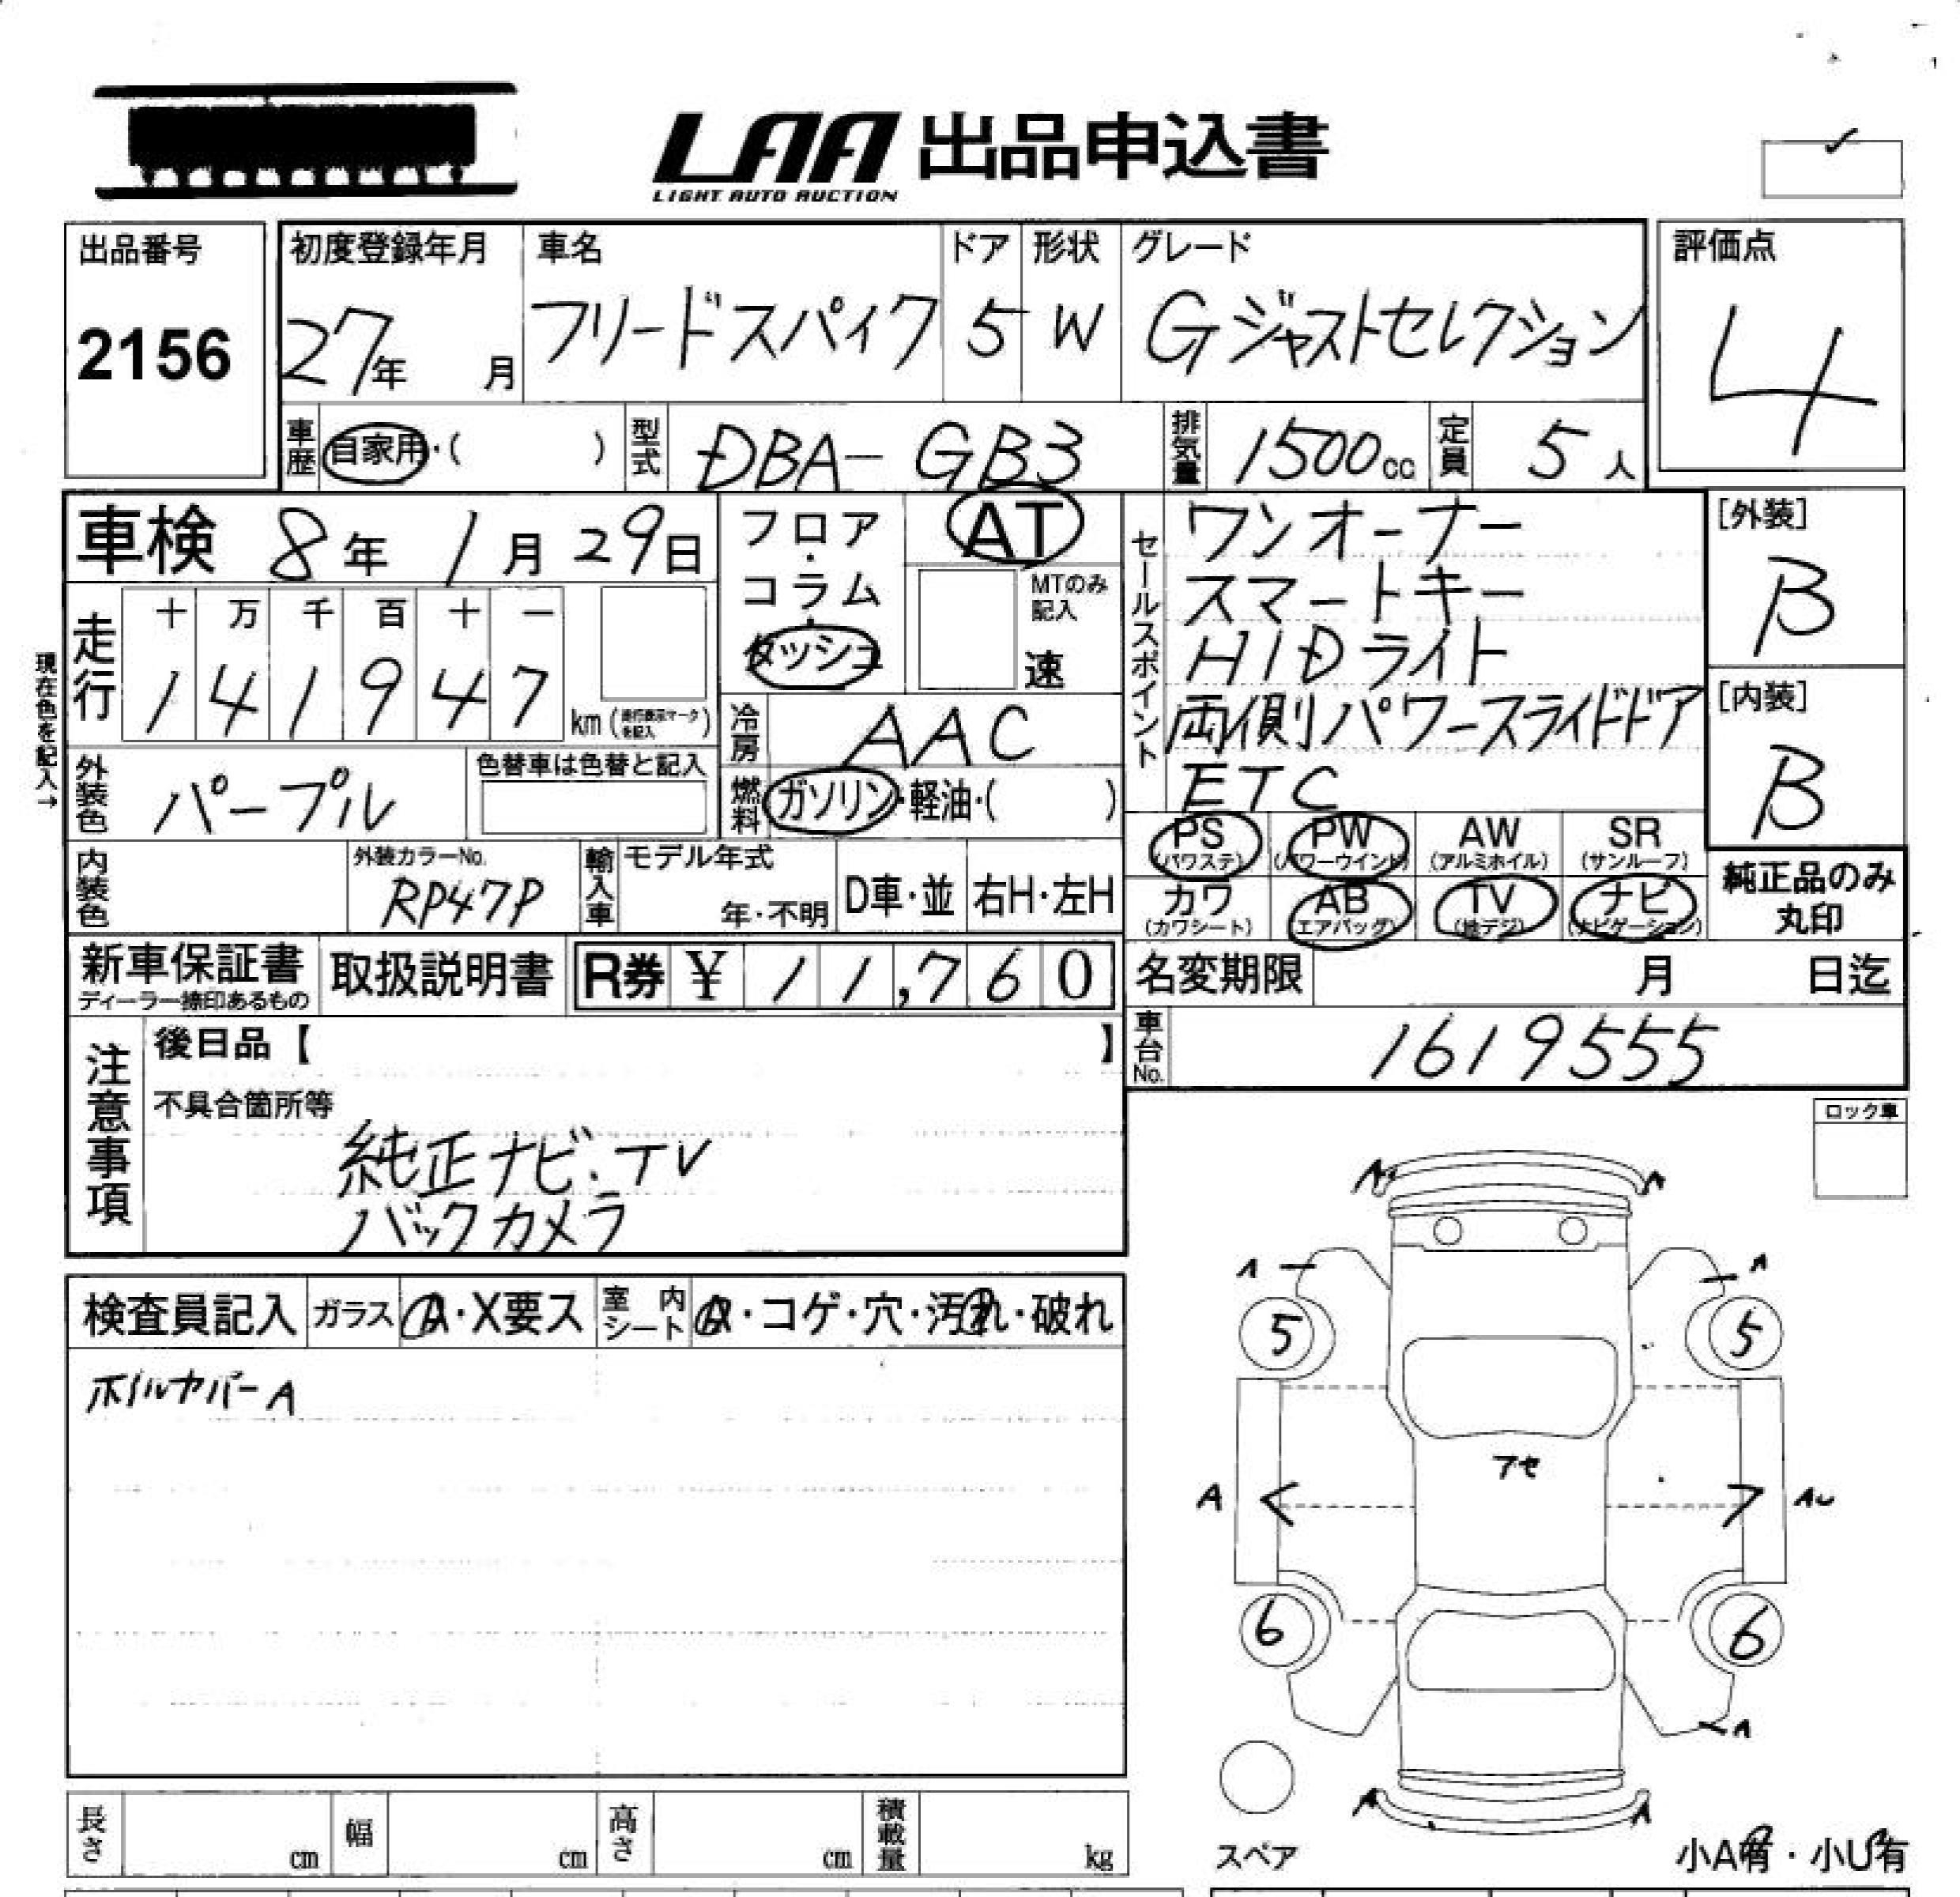 LAA 出品申込書
LIGHT AUTO AUCTION
出品番号
2156
初度登録年月
27年 月
車名
フリードスパイク
ドア
5
形状
W
グレード
Gジャストセレクション
評価点
4
車歴 自家用・( )
型式 DBA-GB3
排気量 1500cc
定員 5人
車検 8年 1月 29日
フロア・コラム・ダッシュ
AT
MTのみ記入
速
セールスポイント
ワンオーナー
スマートキー
HIDライト
両側パワースライドドア
ETC
[外装]
B
[内装]
B
現在色を記入→
走行
十 万 千 百 十 一
1 4 1 9 4 7
km (走行表示マークを記入)
冷房 AAC
燃料 ガソリン・軽油・( )
外装色 パープル
色替車は色替と記入
内装色
外装カラーNo.
RP47P
輸入車
モデル年式
年・不明
D車・並
右H・左H
PS (パワステ)
PW (パワーウインド)
AW (アルミホイル)
SR (サンルーフ)
カワ (カワシート)
AB (エアバッグ)
TV (地デジ)
ナビ (ナビゲーション)
純正品のみ
丸印
新車保証書
ディーラー捺印あるもの
取扱説明書
R券 ¥ 11,760
名変期限 月 日迄
車台No. 1619555
注意事項
後日品【 】
不具合箇所等
純正ナビ・TV
バックカメラ
ロック車
検査員記入
ガラス A・X要ス
室内シート A・コゲ・穴・汚れ・破れ
ホイルカバーA
A A
A A
5 5
アセ
A AU
6 6
A
A A
スペア
小A有・小U有
長さ cm
幅 cm
高さ cm
積載量 kg